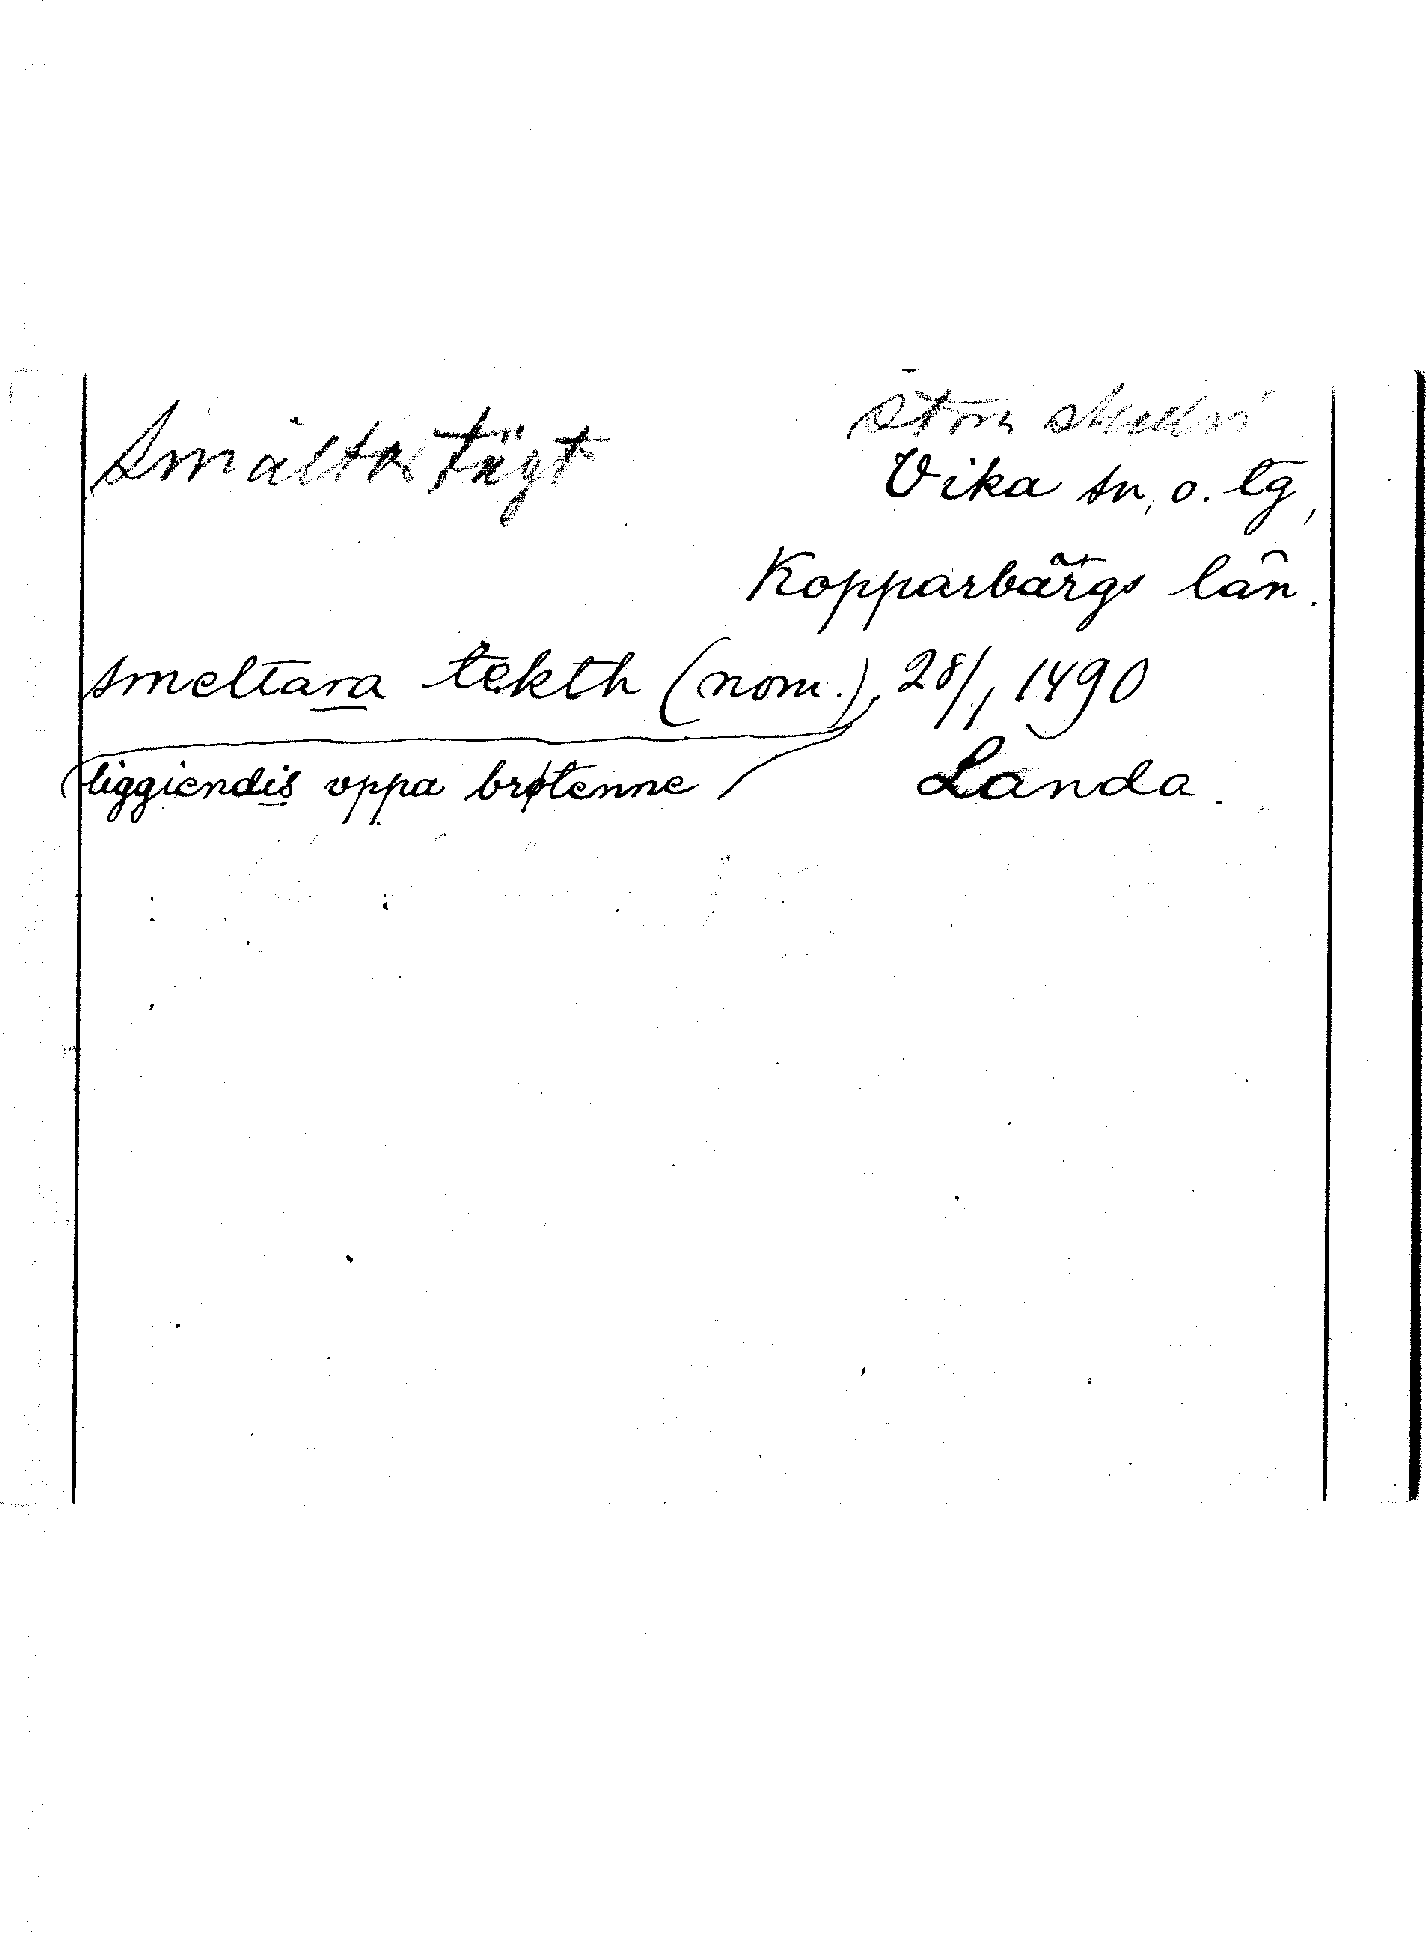 Smältartägt
Vika sn, o. tg,
Kopparbärgs län.
smeltara tekth (nom.), 28/1 1490
liggiendis vppa brøtenne
Landa.